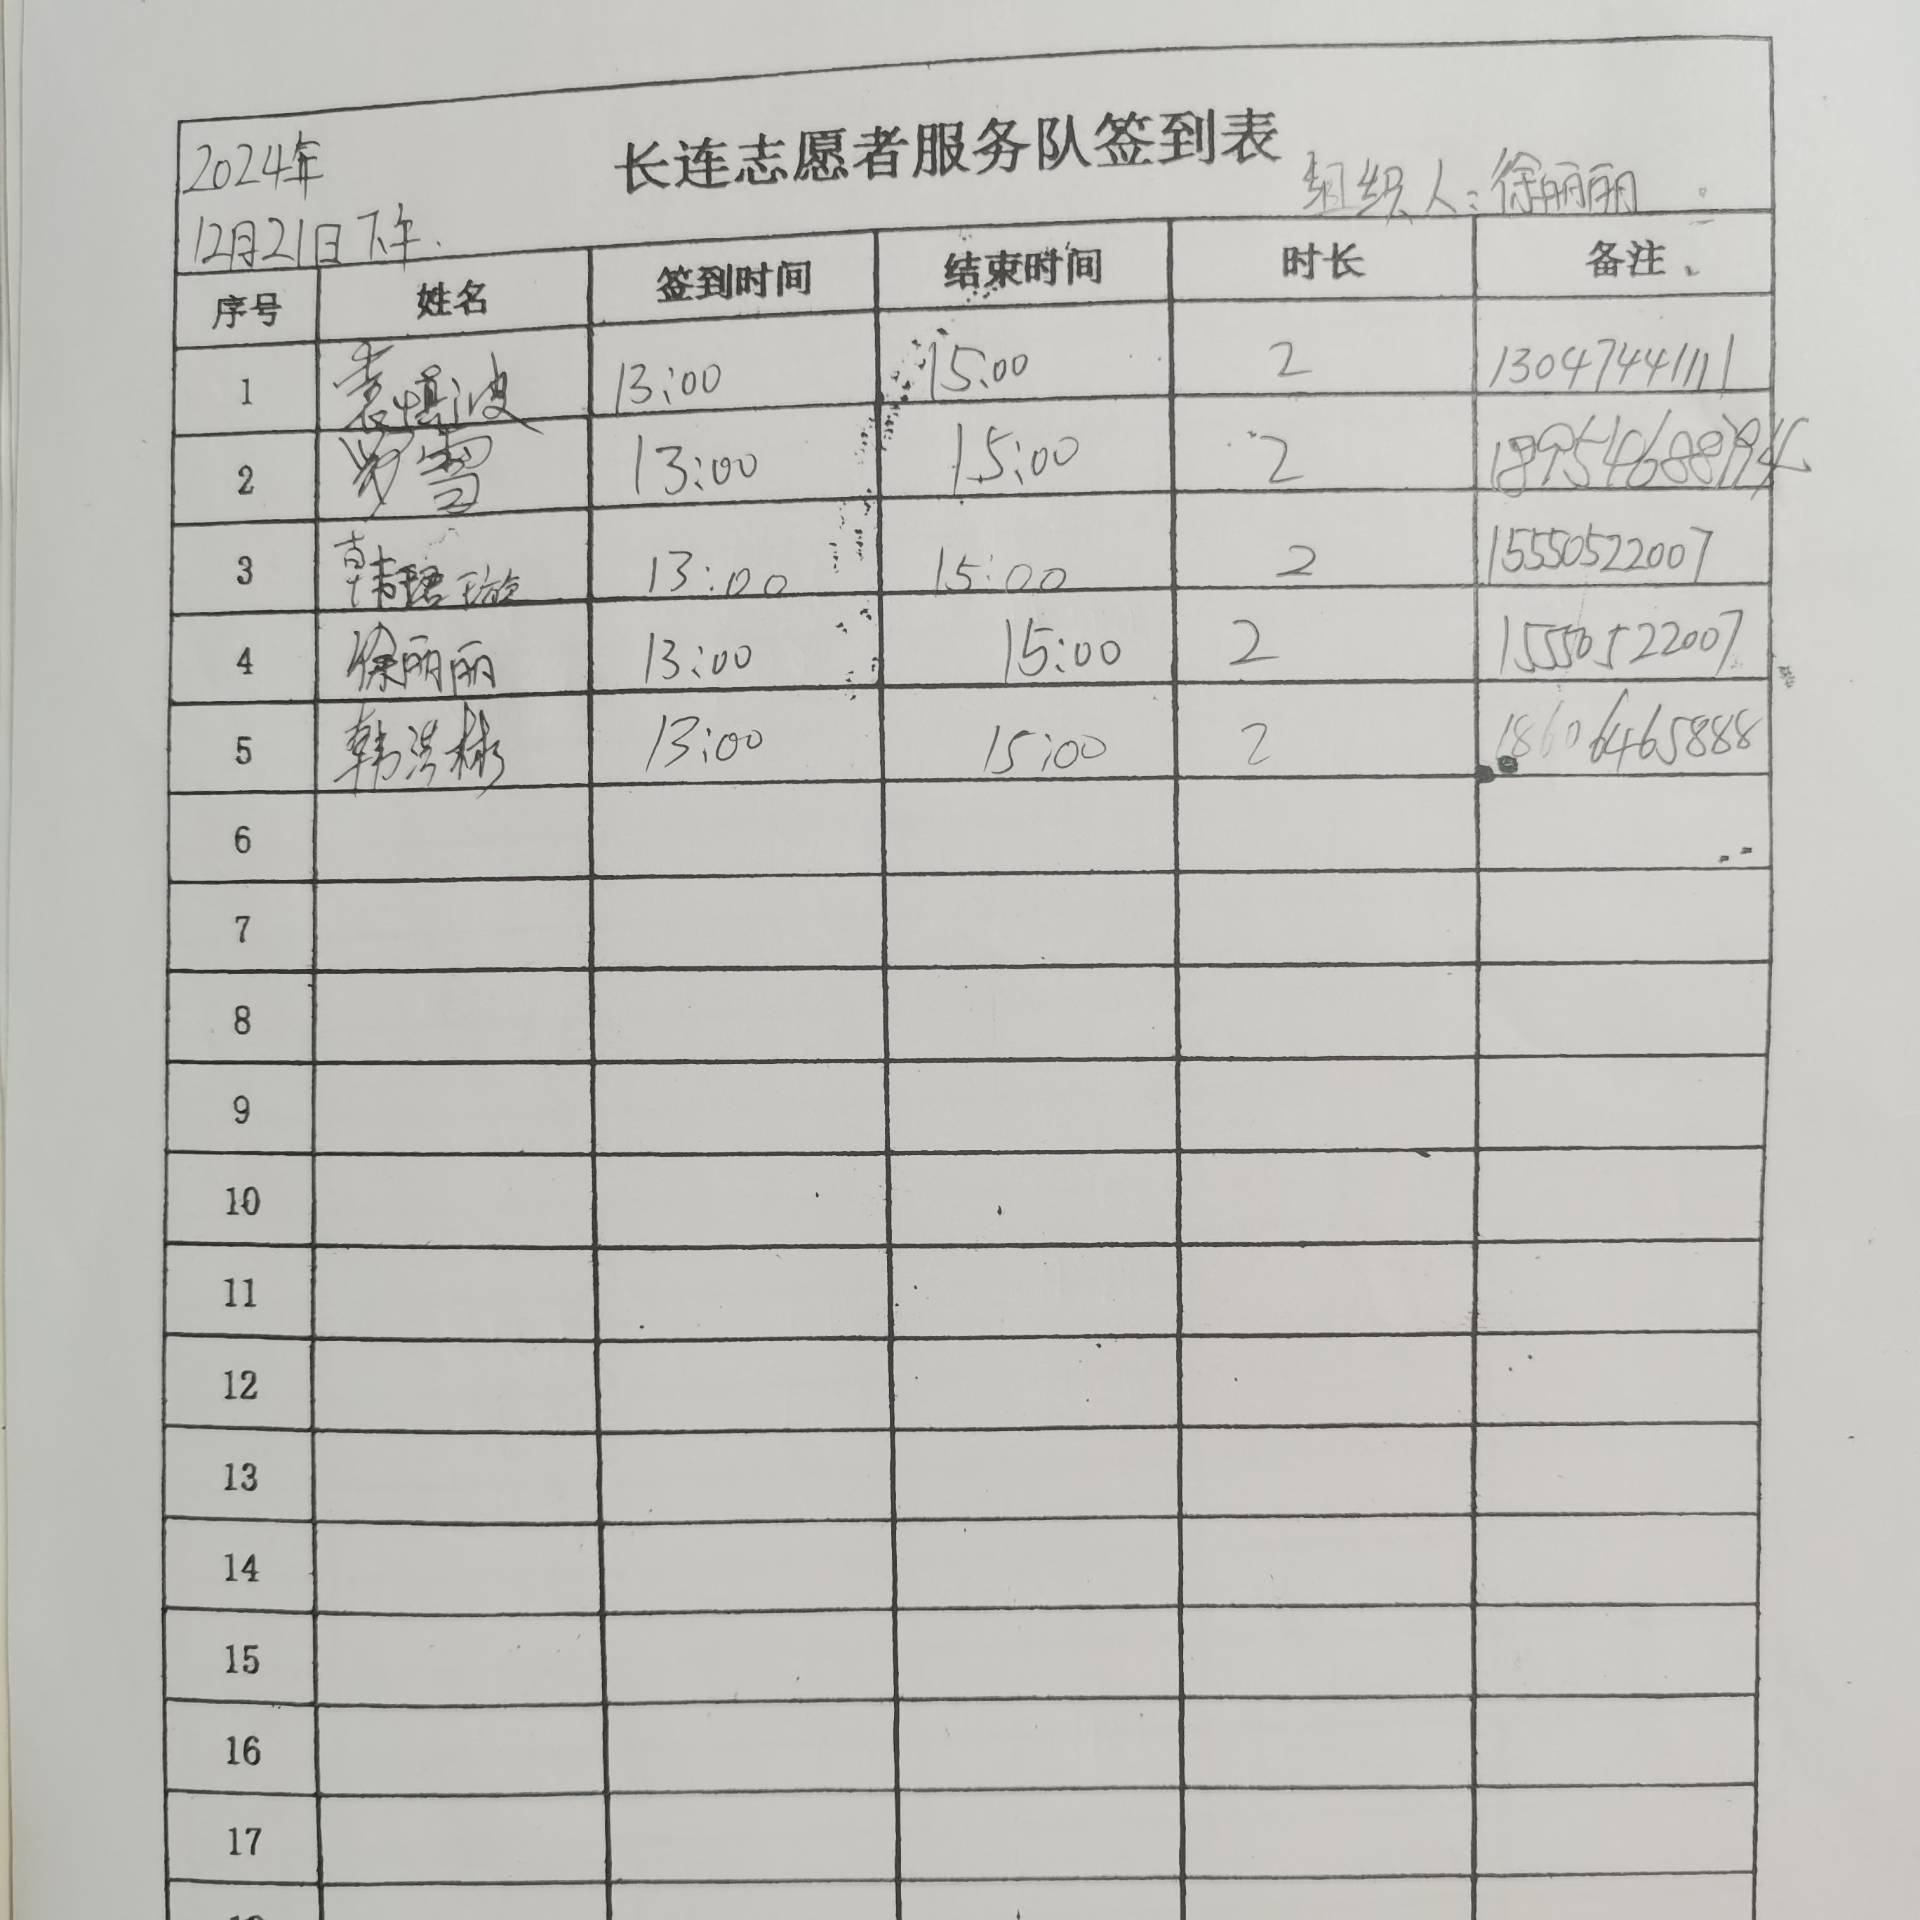 2024年
长连志愿者服务队签到表
组织人:徐丽丽
12月21日下午.
序号 姓名 签到时间 结束时间 时长 备注
1 袁慎波 13:00 15:00 2 13047441111
2 罗雪 13:00 15:00 2
3 韩珺璇 13:00 15:00 2 15550522007
4 徐丽丽 13:00 15:00 2 15550522007
5 韩洪彬 13:00 15:00 2 18606465888
6
7
8
9
10
11
12
13
14
15
16
17